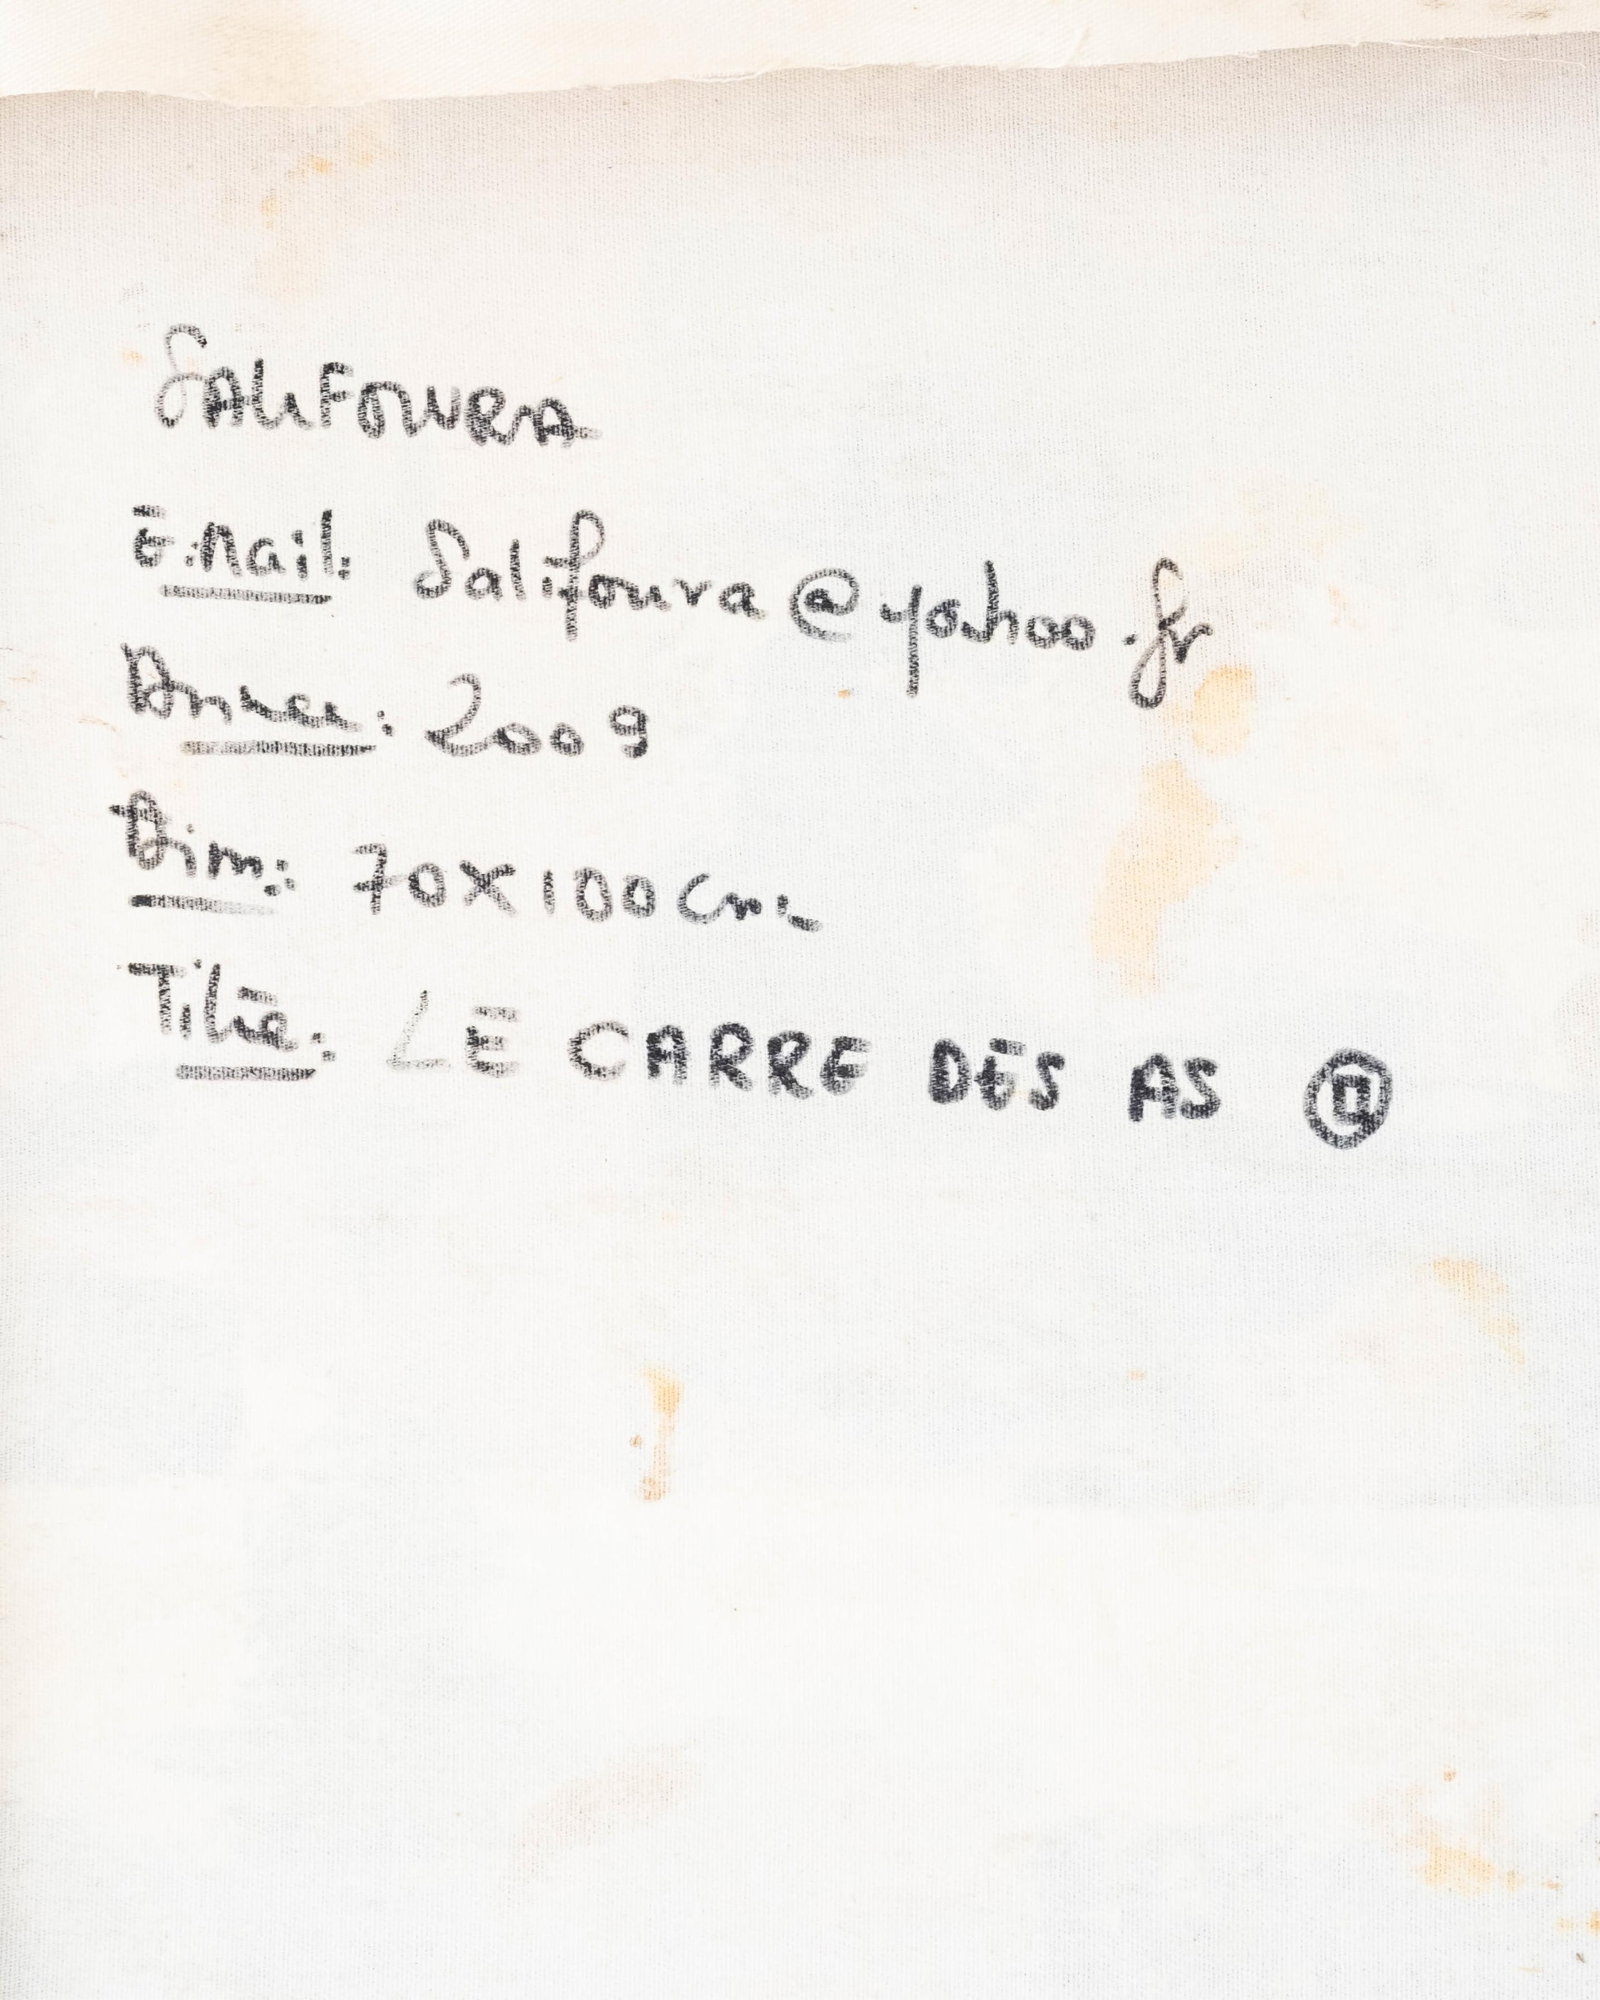 SALIFOURA
E.Mail: Salifoura@yahoo.fr
Annee: 2009
Dim: 70x100cm
Titre: LE CARRE DES AS